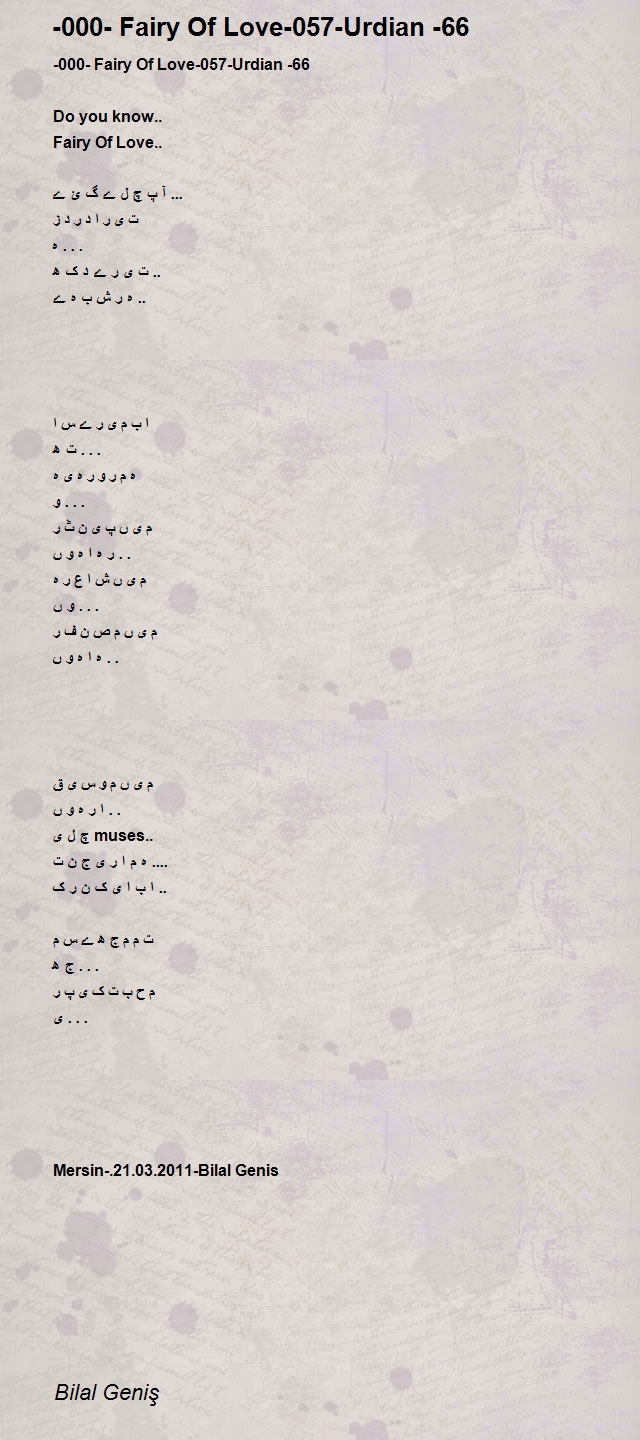 -000- Fairy Of Love-057-Urdian -66
-000- Fairy Of Love-057-Urdian -66
Do you know..
Fairy Of Love..
آ پ چ ل ے گ ئ ے ...
ت ی ر ا د ر د ز
ہ . . .
ت ی ر ے د ک ھ ..
ہ ر ش ب ہ ے ..
ا ب م ی ر ے س ا
ت ھ . . .
ہ م ر و ر ہ ی ہ
و . . .
م ی ں پ ی ن ٹ ر
ر ہ ا ہ و ں . .
م ی ں ش ا ع ر ہ
و ں . . .
م ی ں م ص ن ف ر
ہ ا ہ و ں . .
م ی ں م و س ی ق
ا ر ہ و ں . .
چ ل ی muses..
ہ م ا ر ی ج ن ت ....
ا ب ا ی ک ن ر ک ..
ت م م ج ھ ے س م
ج ھ . . .
م ح ب ت ک ی پ ر
ی . . .
Mersin-.21.03.2011-Bilal Genis
Bilal Geniş